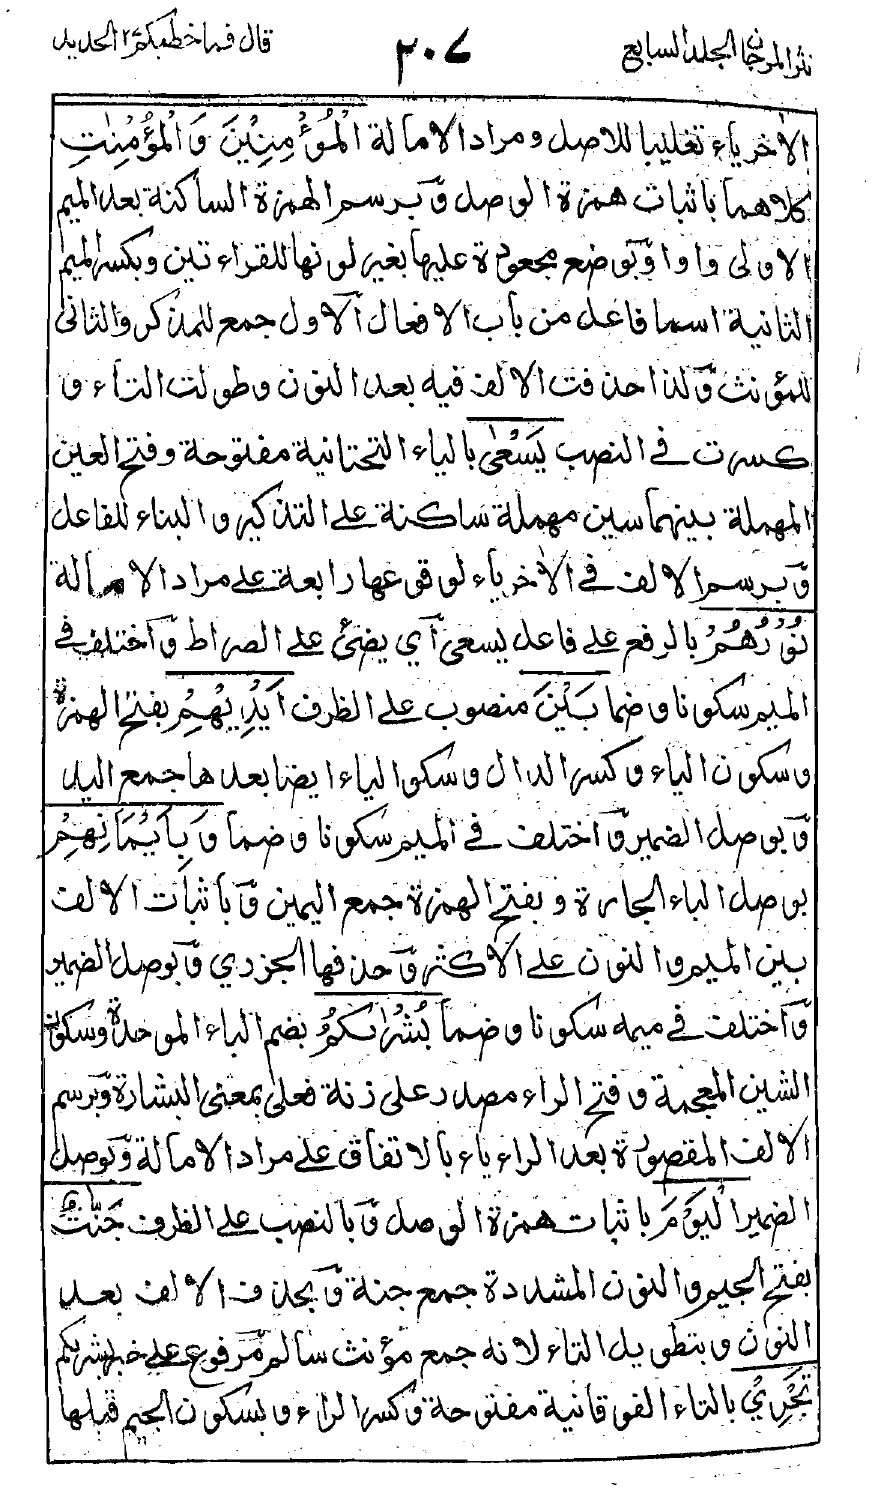 نثر المرجان الجلد السابع
٢٠٧
قال فما خطبكم ٢٧ الحديد
الاخرياء تغليبا للاصل و مراد الامالة الْمُؤْمِنِيْنَ وَالْمُؤْمِنٰتِ
كلاهما باثبات همزة الوصل وَبرسم الهمزة الساكنة بعد الميم
الاولى واوا وَبوضع مجعودة عليها بغير لونها للقراءتين وبكسر الميم
الثانية اسما فاعل من باب الافعال اَلاول جمع للمذكر والثانى
للمؤنث وَلذا حذفت الالف فيه بعد النون وطولت التاء و
كسرت فى النصب يَسْعٰى بالياء التحتانية مفتوحة وفتح العين
المهملة بينهما سين مهملة ساكنة على التذكير والبناء للفاعل
وَبرسم الالف فى الاٰخرياء لوقوعها رابعة على مراد الامالة
نُوْرُهُمْ بالرفع على فاعل يسعى اَي يضئ على الصراط وَاختلف فى
الميم سكونا وضما بَيْنَ منصوب على الظرف اَيْدِيْهِمْ بفتح الهمزة
وسكون الياء وكسر الدال وسكو الياء ايضا بعدها جمع اليد
وَبوصل الضمير وَاختلف فى الميم سكونا وضما وَبِاَيْمَانِهِمْ
بوصل الباء الجارة وبفتح الهمزة جمع اليمين وَباثبات الالف
بين الميم والنون على الاكثر وَحذفها الجزري وَبوصل الضمير
وَاختلف فى ميمه سكونا وضما بُشْرٰىكُمْ بضم الباء الموحدة وسكون
الشين المعجمة وفتح الراء مصدر على زنة فعلى بمعنى البشارة وَبرسم
الالف المقصورة بعد الراء ياء بالاتفاق على مراد الامالة وَبوصل
الضمير الْيَوْمَ باثبات همزة الوصل وَبالنصب على الظرف جَنّٰتٌ
بفتح الجيم والنون المشددة جمع جنة وَبحذف الالف بعد
النون وبتطويل التاء لانه جمع مؤنث سالم مَرفوع على خبر بشريكم
تَجْرِيْ بالتاء الفوقانية مفتوحة وكسر الراء وبسكون الجيم قبلها